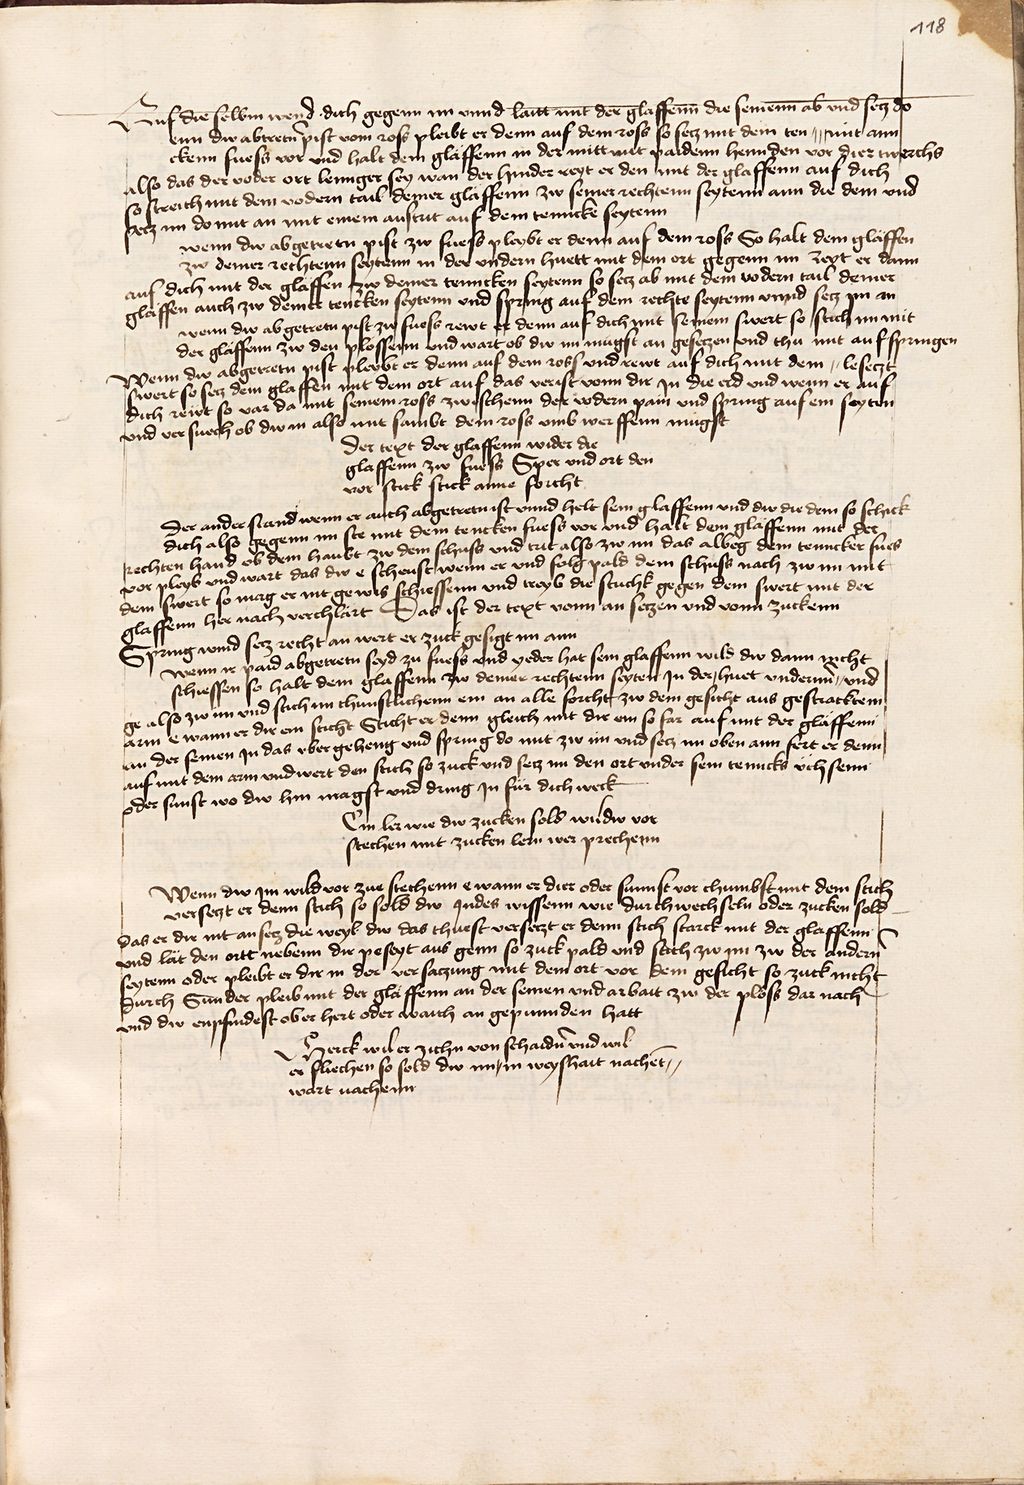 118
Auf die selbin wend dich gegenn im vnnd latt mit der glaffenn die seinenn ab vnd secz do
enn dw abtretn pist vom ross pleibt er denn auf dem ross so secz mit dem ten // mit ann
ckenn fuess vor vnd halt dein glaffenn in der mitt mit paidenn hennden vor dier twerchs
also das der voder ort lennger sey wan der hinder reyt er den mit der glaffenn auf dich
so streich mit dem vodern tail deiner glaffenn zw seiner rechtenn seytenn ann die dein vnd
secz im do mit an mit einem austrit auf dem tenncke seytenn
wenn dw abgetretn pist zw fuess pleybt er denn auf dem ross So halt dein glaffen
zw deiner rechtenn seytenn in der vndern huett mit dem ort gegenn im Reyt er dann
auf dich mit der glaffen zw deiner tenncken seytenn so secz ab mit dem vodern tail deiner
glaffen auch zw deiner tencken seytenn vnd spring auf dein rechte seytenn vnnd secz im an
wenn dw abgetretn pist zw fuess rewt er denn auf dich mit seinem swert so stich im mit
der glaffenn zw den plossenn vnd wart ob dw im mugst an geseczen vnd thu mit auf springen
Wenn dw abgetretn pist pleybt er denn auf dem ross vnd rewt auf dich mit dem // lesetzt
swert so secz dein glaffen mit dem ort auf das verist vonn dir In die erd vnd wenn er auf
dich rewt so var da mit seinem ross zwischenn der vodern pain vnd spring auf ein seyten
vnd versuech ob dw in also mit sambt dem ross vmb werffenn mugst
Der text der glaffenn wider die
glaffenn zw fuess Sper vnd ort den
vor stich stick anne forcht
Der ander stand wenn er auch abgetretn ist vnnd helt sein glaffenn vnd dw die dein so schick
dich also gegenn im ste mit dem tencken fuess vor vnd halt dein glaffenn mit der
rechten hand ob dem haubt zw dem schuss vnd trit also zw im das albeg dein tenncker fues
vor pleyb vnd wart das dw e scheust wenn er vnd folg pald dem schuss nach zw im mit
dem swert so mag er nit gewis schiessenn vnd treyb die stuchk gegen dem swert mit der
glaffenn her nach verchlart Das ist der text vonn an seczen vnd vonn zuckenn
Spring wind secz recht an wert er zuck gesigt im ann
wenn ir paid abgetretn seyd zu fuess vnd yeder hat sein glaffenn wild dw dann nicht
schiessen so halt dein glaffenn zw deiner rechtenn seyten In der huet vndernn // vnd
ge also zw im vnd stich im thunstlichenn ein an alle forcht zw dem gesicht aus gestracktem
arm e wann er dir ein sticht Sticht er denn gleich mit dir ein so far auf mit der glaffenn
an der seinen In das vbergeheng vnd spring do mit zw im vnd secz im oben ann fert er denn
auf mit dem arm vnd wert den stich so zuck vnd secz im den ort vnder sein tenncks vchsenn
oder sunst wo dw hin magst vnd dring In für dich weck
Ein ler wie dw zucken sold wildw vor
stechen mit zucken lern wer prechenn
Wenn dw Im wild vor zue stechenn e wann er dier oder sunnst vor chumbst mit dem stich
versetzt er denn stich so sold dw Indes wissenn wie durchwechseln oder zucken sold
das er dir nit an secz die weyl dw das thuest versetzt er denn stich starck mit der glaffenn
vnd lät den ortt nebenn dir peseyt aus genn so zuck pald vnd stich zw im zw der andern
seytenn oder pleibt er dir in der versaczung mit dem ort vor dem gesicht so zuck nicht
durch Sunder pleib mit der glaffenn an der seinen vnd arbait zw der ploss dar nach
vnd dw enpfindest ob er hert oder waich an gepunnden hatt
Merck wil er zichn von schaidn vnd wil
er fliechen so sold dw im in weyshait nachen //
wart nachenn